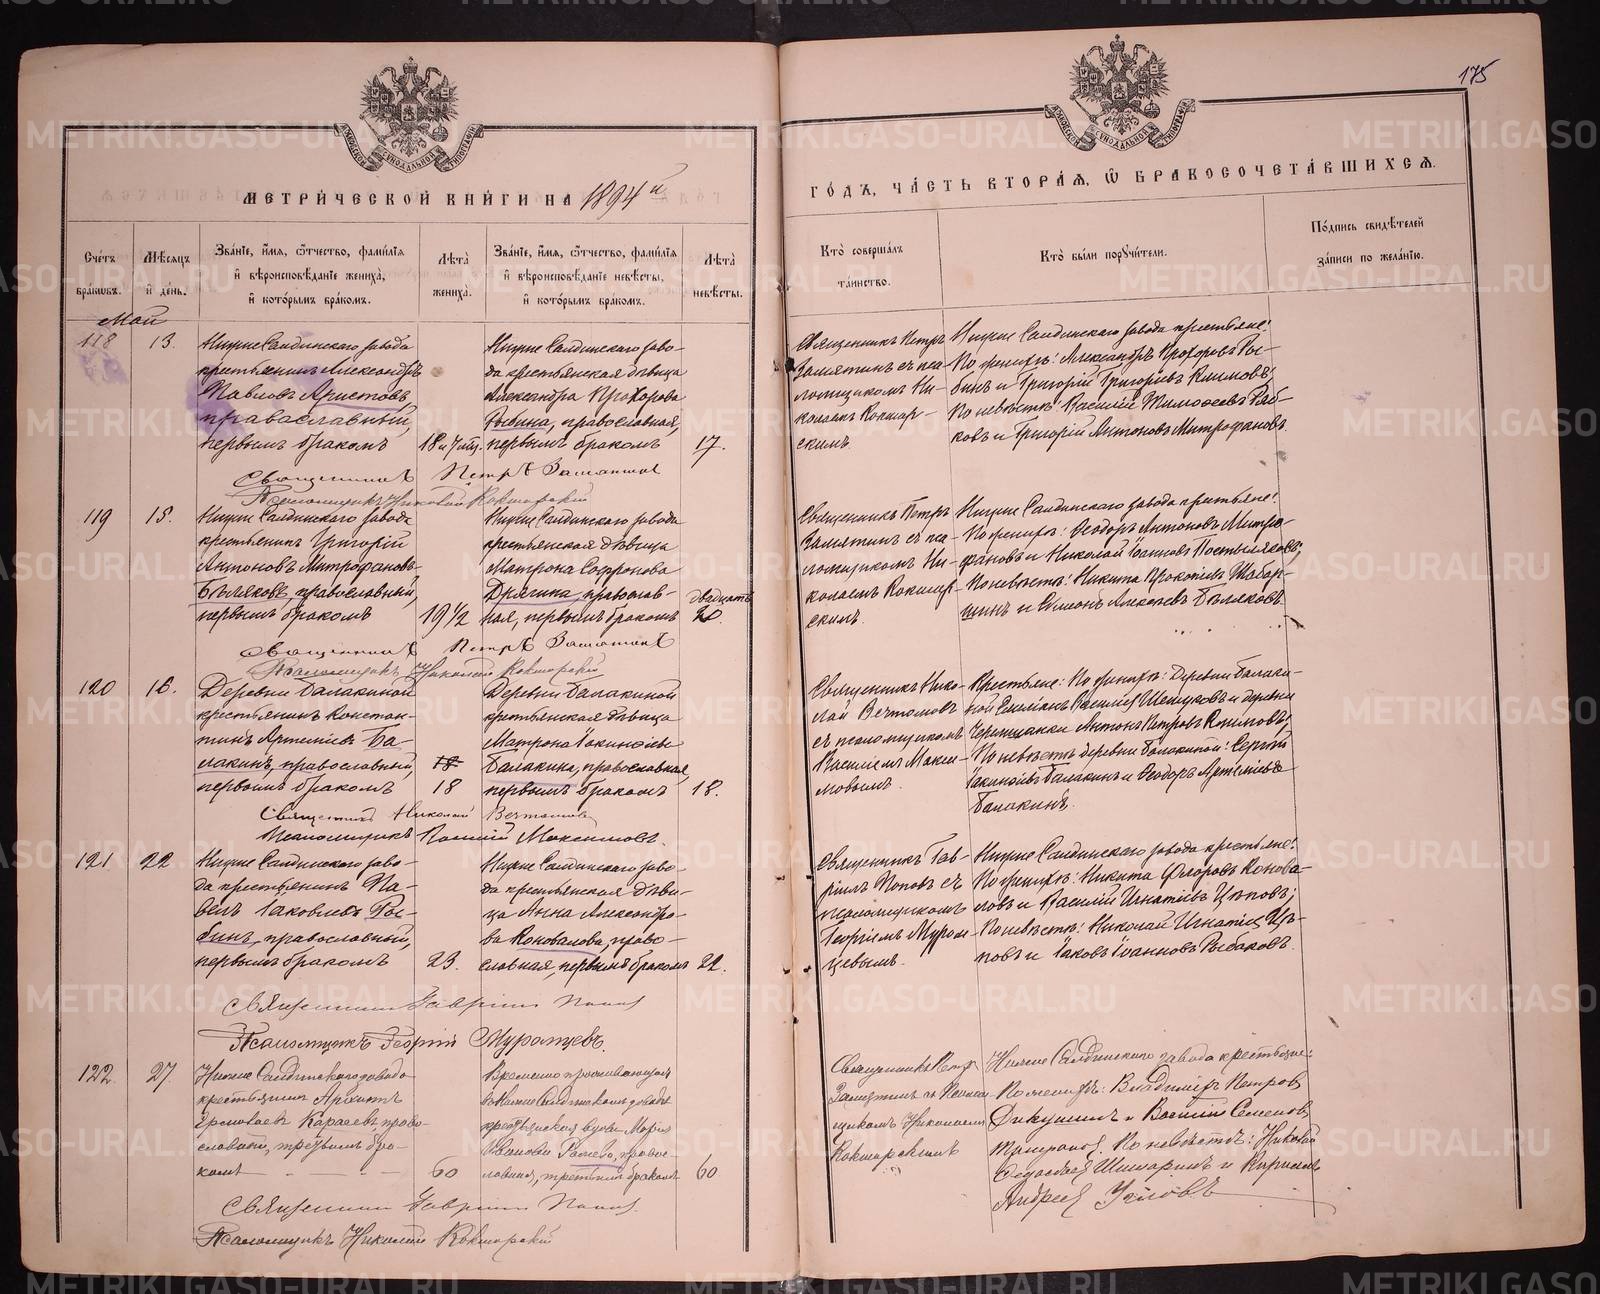 175
МЕТРИЧЕСКОЙ КНИГИ НА 1894 й
ГОДЪ, ЧАСТЬ ВТОРАЯ, Ѡ БРАКОСОЧЕТАВШИХСЯ.
Счетъ браковъ.
Мѣсяцъ и день.
Званіе, имя, отчество, фамилія и вѣроисповѣданіе жениха, и которымъ бракомъ.
Лѣта жениха.
Званіе, имя, отчество, фамилія и вѣроисповѣданіе невѣсты, и которымъ бракомъ.
Лѣта невѣсты.
Кто совершалъ таинство.
Кто были поручители.
Подпись свидѣтелей записи по желанію.
Май
118
13.
Нижне Салдинскаго завода
крестьянинъ Александръ
Павловъ Аристовъ,
православный,
первымъ бракомъ
18 и 7 мѣс.
Нижне Салдинскаго заво-
да крестьянская дѣвица
Александра Прохорова
Рыбина, православная,
первымъ бракомъ
17.
Священникъ Петръ
Замятинъ съ пса-
ломщикомъ Ни-
колаемъ Кокшар-
скимъ.
Нижне Салдинскаго завода крестьяне:
По женихѣ: Александръ Прохоровъ Ры-
бинъ и Григорій Григорьевъ Климовъ;
По невѣстѣ: Василій Тимофеевъ
ковъ и Григорій Антоновъ Митрофановъ.
Священникъ Петръ Замятинъ
Псаломщикъ Николай Кокшарскій
119
15.
Нижне Салдинскаго завода
крестьянинъ Григорій
Антоновъ Митрофановъ-
Бѣляковъ, православный,
первымъ бракомъ
19 1/2
Нижне Салдинскаго завода
крестьянская дѣвица
Матрона Софронова
Дрягина, православ-
ная, первымъ бракомъ
двадцать
20.
Священникъ Петръ
Замятинъ съ пса-
ломщикомъ Ни-
колаемъ Кокшар-
скимъ.
Нижне Салдинскаго завода крестьяне:
По женихѣ: Ѳеодоръ Антоновъ Митро-
фановъ и Николай Іоанновъ Постыляковъ;
По невѣстѣ: Никита Прокопьевъ Шабар-
шинъ и Симеонъ Алексѣевъ Бѣляковъ.
Священникъ Петръ Замятинъ
Псаломщикъ Николай Кокшарскій
120
16.
Деревни Балакиной
крестьянинъ Констан-
тинъ Артемьевъ Ба-
лакинъ, православный,
первымъ бракомъ
18
18
Деревни Балакиной
крестьянская дѣвица
Матрона Іакинѳіева
Балакина, православная,
первымъ бракомъ
18.
Священникъ Нико-
лай Вечтомовъ
съ псаломщикомъ
Василіемъ Макси-
мовымъ.
Крестьяне: По женихѣ: Деревни Балаки-
ной Василій и деревни
Антонъ Петровъ Климовъ;
По невѣстѣ деревни Балакиной: Сергій
Іакинѳіевъ Балакинъ и Ѳеодоръ Артемьевъ
Балакинъ.
Священникъ Николай Вечтомовъ
Псаломщикъ Василій Максимовъ.
121
22
Нижне Салдинскаго заво-
да крестьянинъ Па-
велъ Іаковлевъ Рос-
бинъ, православный,
первымъ бракомъ
23.
Нижне Салдинскаго заво-
да крестьянская дѣви-
ца Анна Александро-
ва Коновалова, право-
славная, первымъ бракомъ
22.
Священникъ Гав-
ріилъ Поповъ съ
псаломщикомъ
Георгіемъ Муром-
цевымъ.
Нижне Салдинскаго завода крестьяне:
По женихѣ: Никита Флоровъ Конова-
ловъ и Василій Игнатьевъ Цѣповъ;
По невѣстѣ: Николай Игнатьевъ Цѣ-
повъ и Іаковъ Іоанновъ Рыбаковъ.
Священникъ Гавріилъ Поповъ
Псаломщикъ Георгій Муромцевъ.
122.
27.
Нижне Салдинскаго завода
крестьянинъ Архиппъ
Ермолаевъ Карасевъ право-
славный, третьимъ бра-
комъ
60
Временно проживающая
въ Нижне Салдинскомъ заводѣ
крестьянская вдова Марія
Иванова, правос-
лавная, третьимъ бракомъ
60
Священникъ Петръ
Замятинъ съ Псалом-
щикомъ Николаемъ
Кокшарскимъ
Нижне Салдинскаго завода крестьяне:
По женихѣ: Владимиръ Петровъ
Дикушинъ и Василій Семеновъ
По невѣстѣ: Николай
и Кириллъ
Андреевъ
Священникъ Гавріилъ Поповъ.
Псаломщикъ Николай Кокшарскій
METRIKI.GASO-URAL.RU